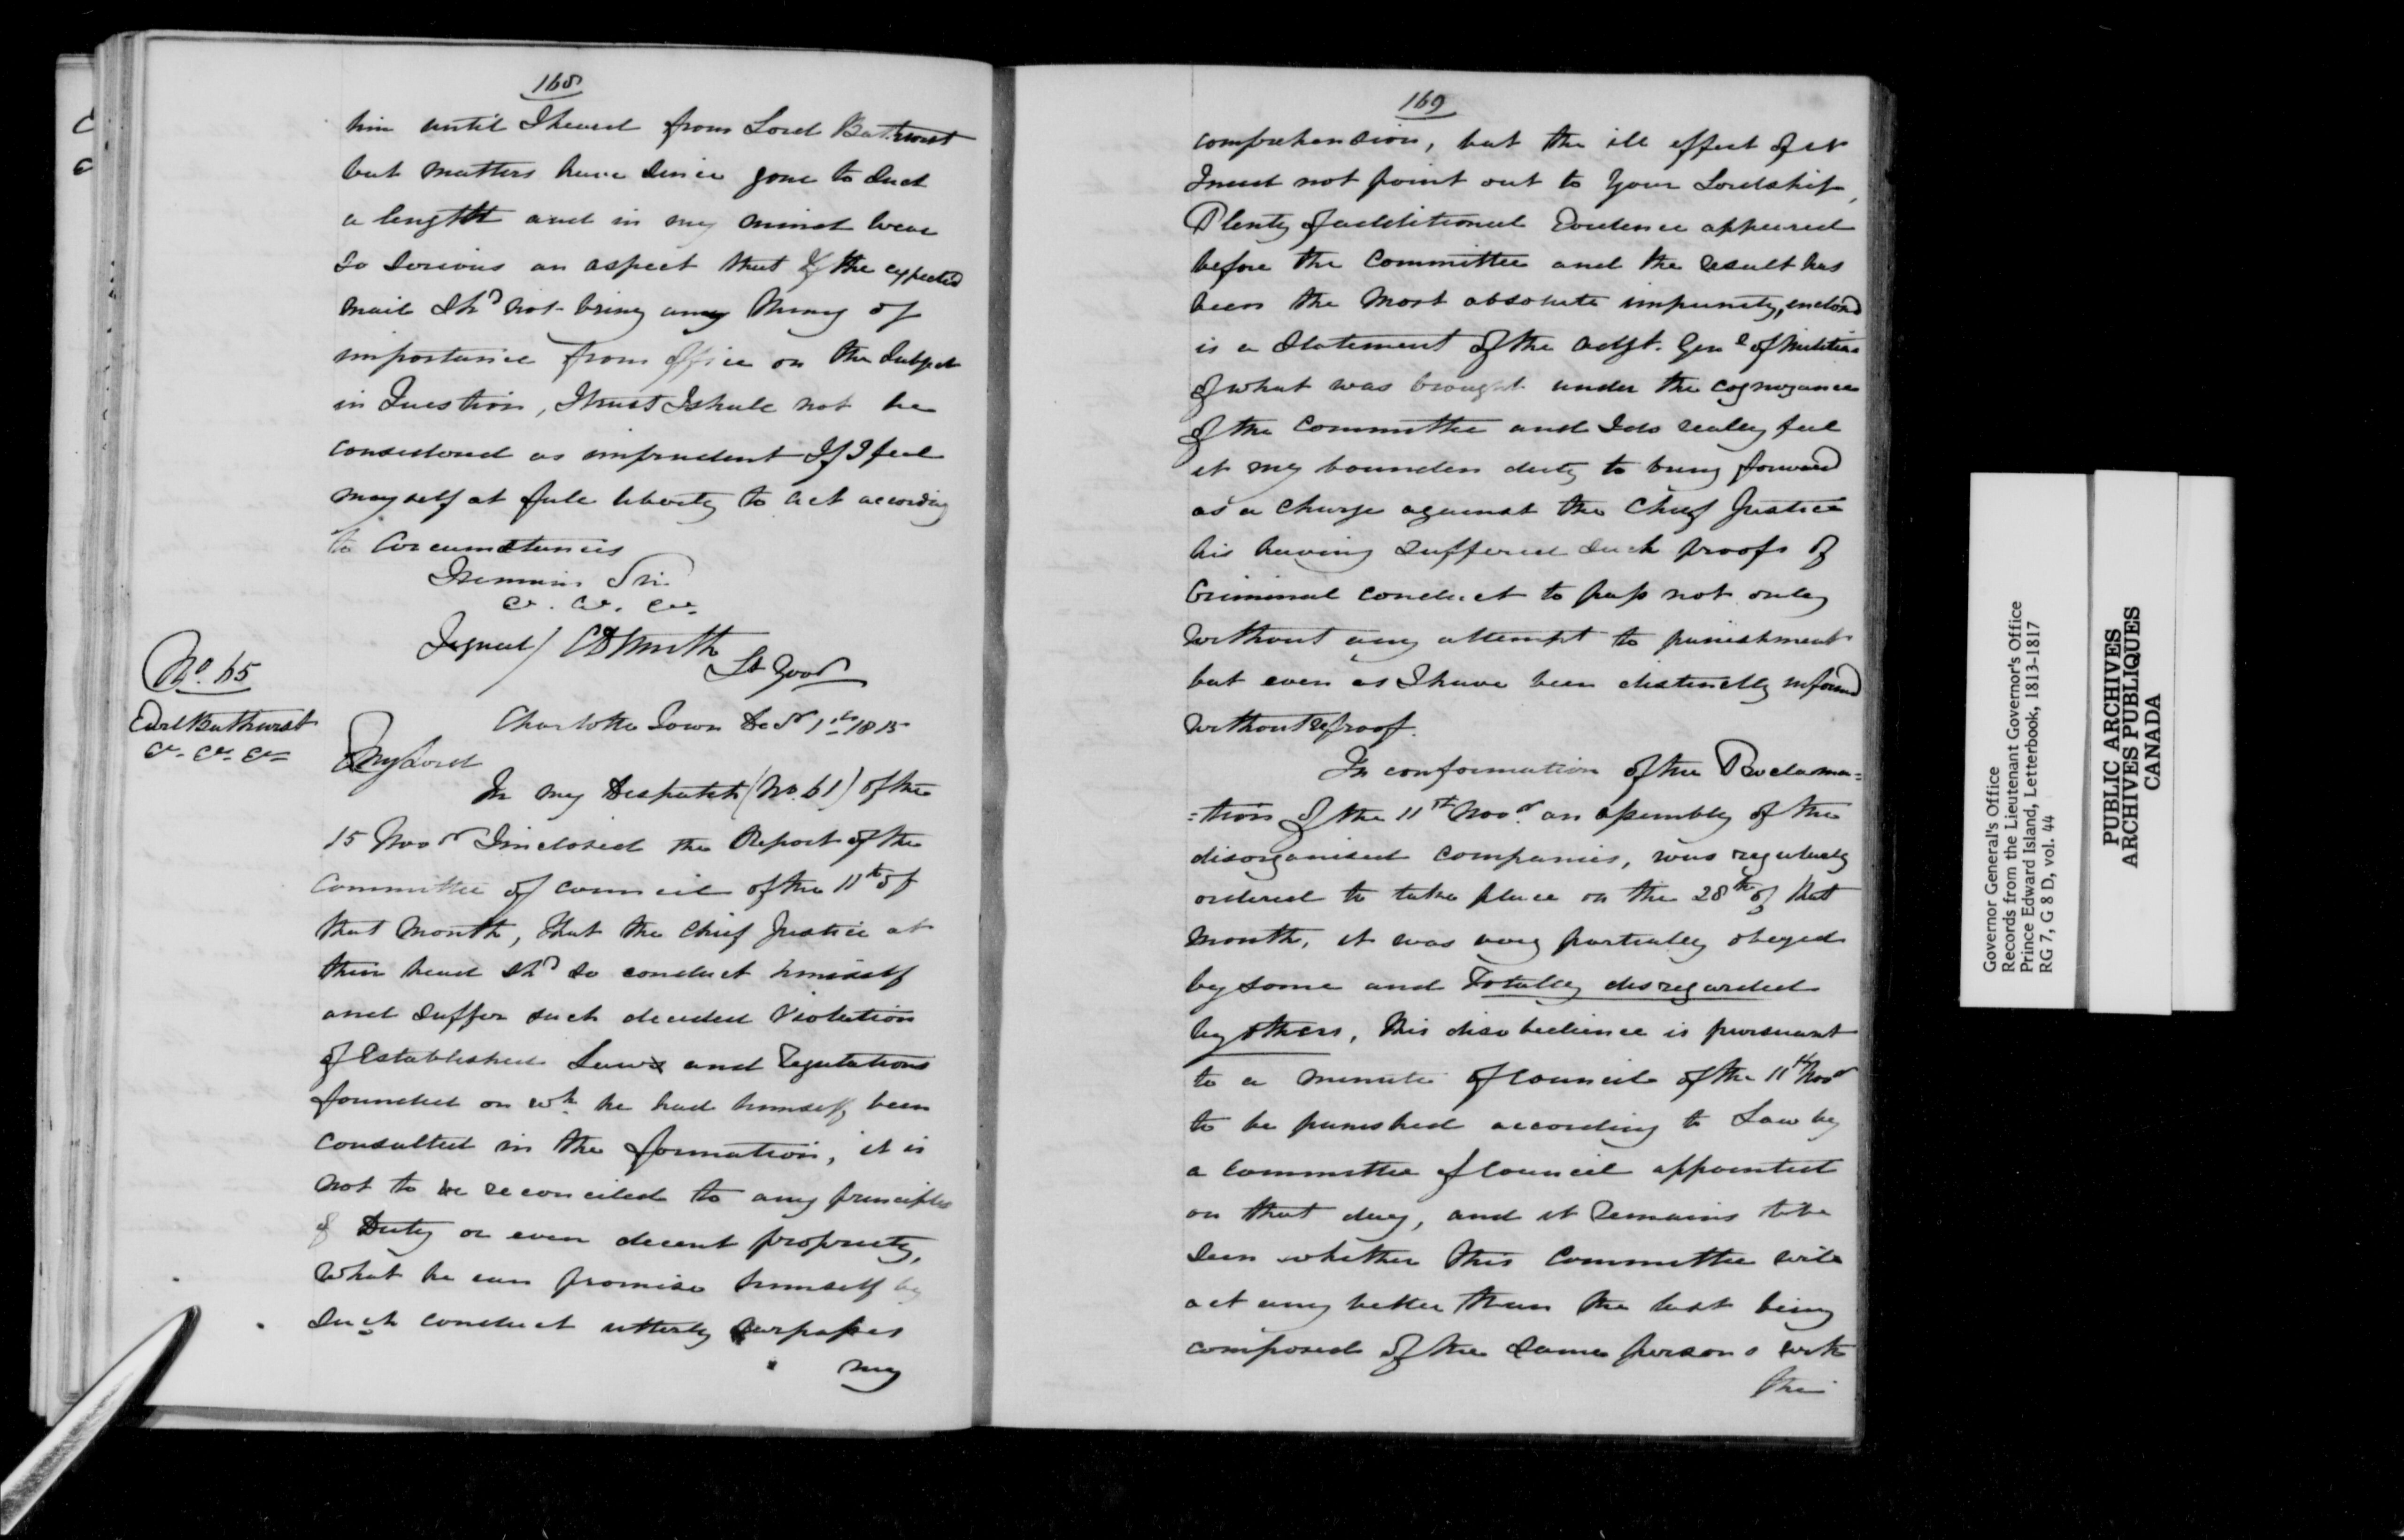 168
him until I heard from Lord Bathurst
but matters have since gone to such
a length and in my mind wear
so serious an aspect that if the expected
mail shd not bring any thing of
importance from office on the Subject
in Question, I trust I shall not be
considered as imprudent If I feel
myself at full liberty to act according
to Circumstances
I remain Sir
&. &. &.
Signed/ CD Smith
Lt Govr
No. 65
Earl Bathurst
&. &. &.
Charlotte Town Decr 1st 1815
My Lord
In my Despatch (No. 61) of the
15 Novr I inclosed the Report of the
Committee of Council of the 11th of
that Month, that the Chief Justice at
their head shd so conduct himself
and suffer such decided Violation
of Established Laws and Regulations
founded on wh. he had himself been
consulted in the formation, it is
not to be reconciled to any principles
of Duty or even decent propriety,
what he can promise himself by
such conduct utterly surpasses
my
169
comprehension, but the ill effect of it
I need not point out to Your Lordship,
Plenty of additional Evidence appeared
before the Committee and the result has
been the most absolute impunity, enclosd
is a Statement of the Adjt. Genl of Militia
of what was brought under the cognizance
of the Committee and I do really feel
it my bounden duty to bring forward
as a charge against the Chief Justice
his having suffered such proofs of
Criminal conduct to pass not only
without any attempt to punishment
but even as I have been distinctly informd
without reproof.
In conformation of the Proclama=
=tion of the 11th Novr. an assembly of the
disorganised Companies, was regularly
ordered to take place on the 28th of that
Month, it was very partially obeyed
by some and Totally disregarded
by others, this disobedience is pursuant
to a minute of Council of the 11th Novr
to be punished according to Law by
a Committee of Council appointed
on that day, and it remains to be
seen whether this Committee will
act any better than the last being
composed of the same persons with
the
Governor General's Office
Records from the Lieutenant Governor's Office
Prince Edward Island, Letterbook, 1813-1817
RG 7, G 8 D, vol. 44
PUBLIC ARCHIVES
ARCHIVES PUBLIQUES
CANADA